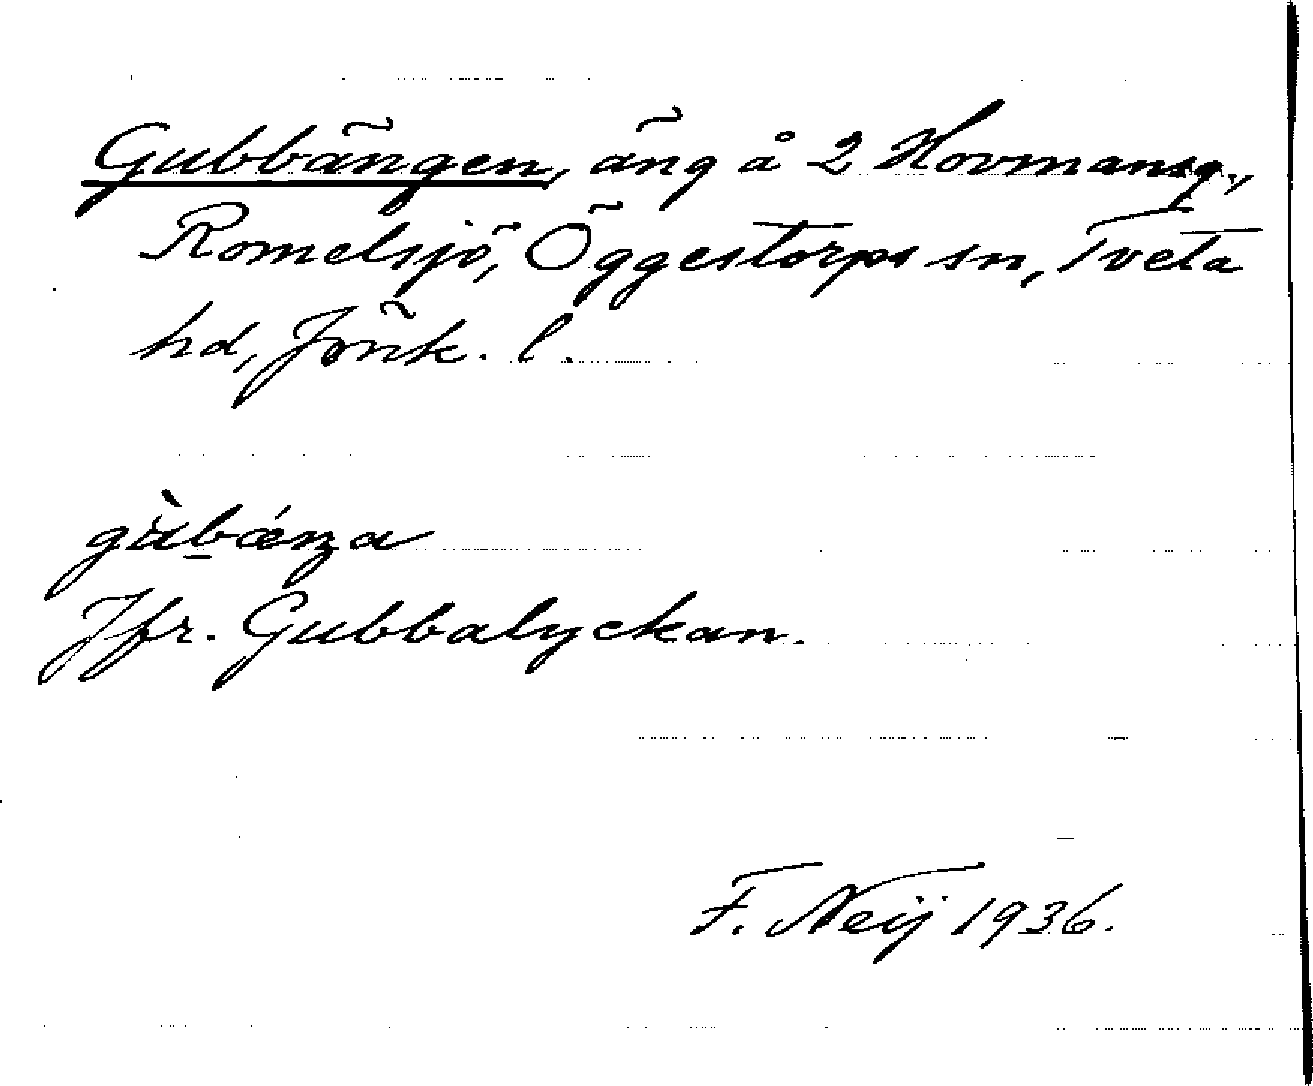 Gubbängen, äng å 2 Hovmansg.,
Romelsjö, Öggestorps sn, Tveta
hd, Jönk. l.
gùbǽŋa
Jfr. Gubbalyckan.
F. Neij 1936.